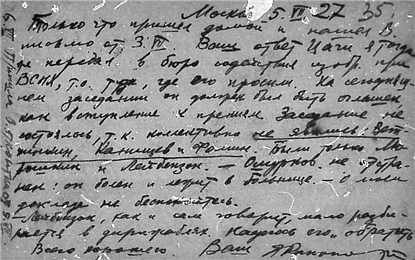 Москва 5. VI 27 35
Только что пришел домой и нашел В
письмо от 3. VI Ваш ответ Цаги я тогда
же передал в бюро содействия изобр. при
ВСНХ, т.е. туда, где его просили. На сегодняш
нем заседании он должен был быть оглашен
как вступление к прениям. Заседание не
состоялось, т.к. коллективно не явились: Вет
чинкин, Канищев и Фомин. Были только
и Лейбензон. — не
нан: он болен и лежит в больнице. — О моем
докладе не беспокойтесь.
— Лейбензон, как и сам говорит, мало разби
рается в дирижаблях. Надеюсь его обратить
Всего хорошего. Ваш